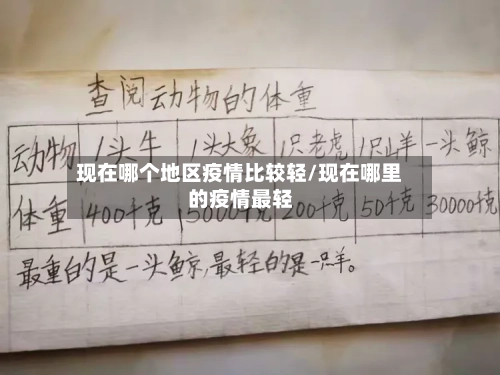 查阅动物的体重
动物 1头牛 1头大象 1只老虎 1只山羊 一头鲸
现在哪个地区疫情比较轻/现在哪里
的疫情最轻
体重 400千克 5000千克 200千克 50千克 30000千克
最重的是一头鲸,最轻的是一只羊。